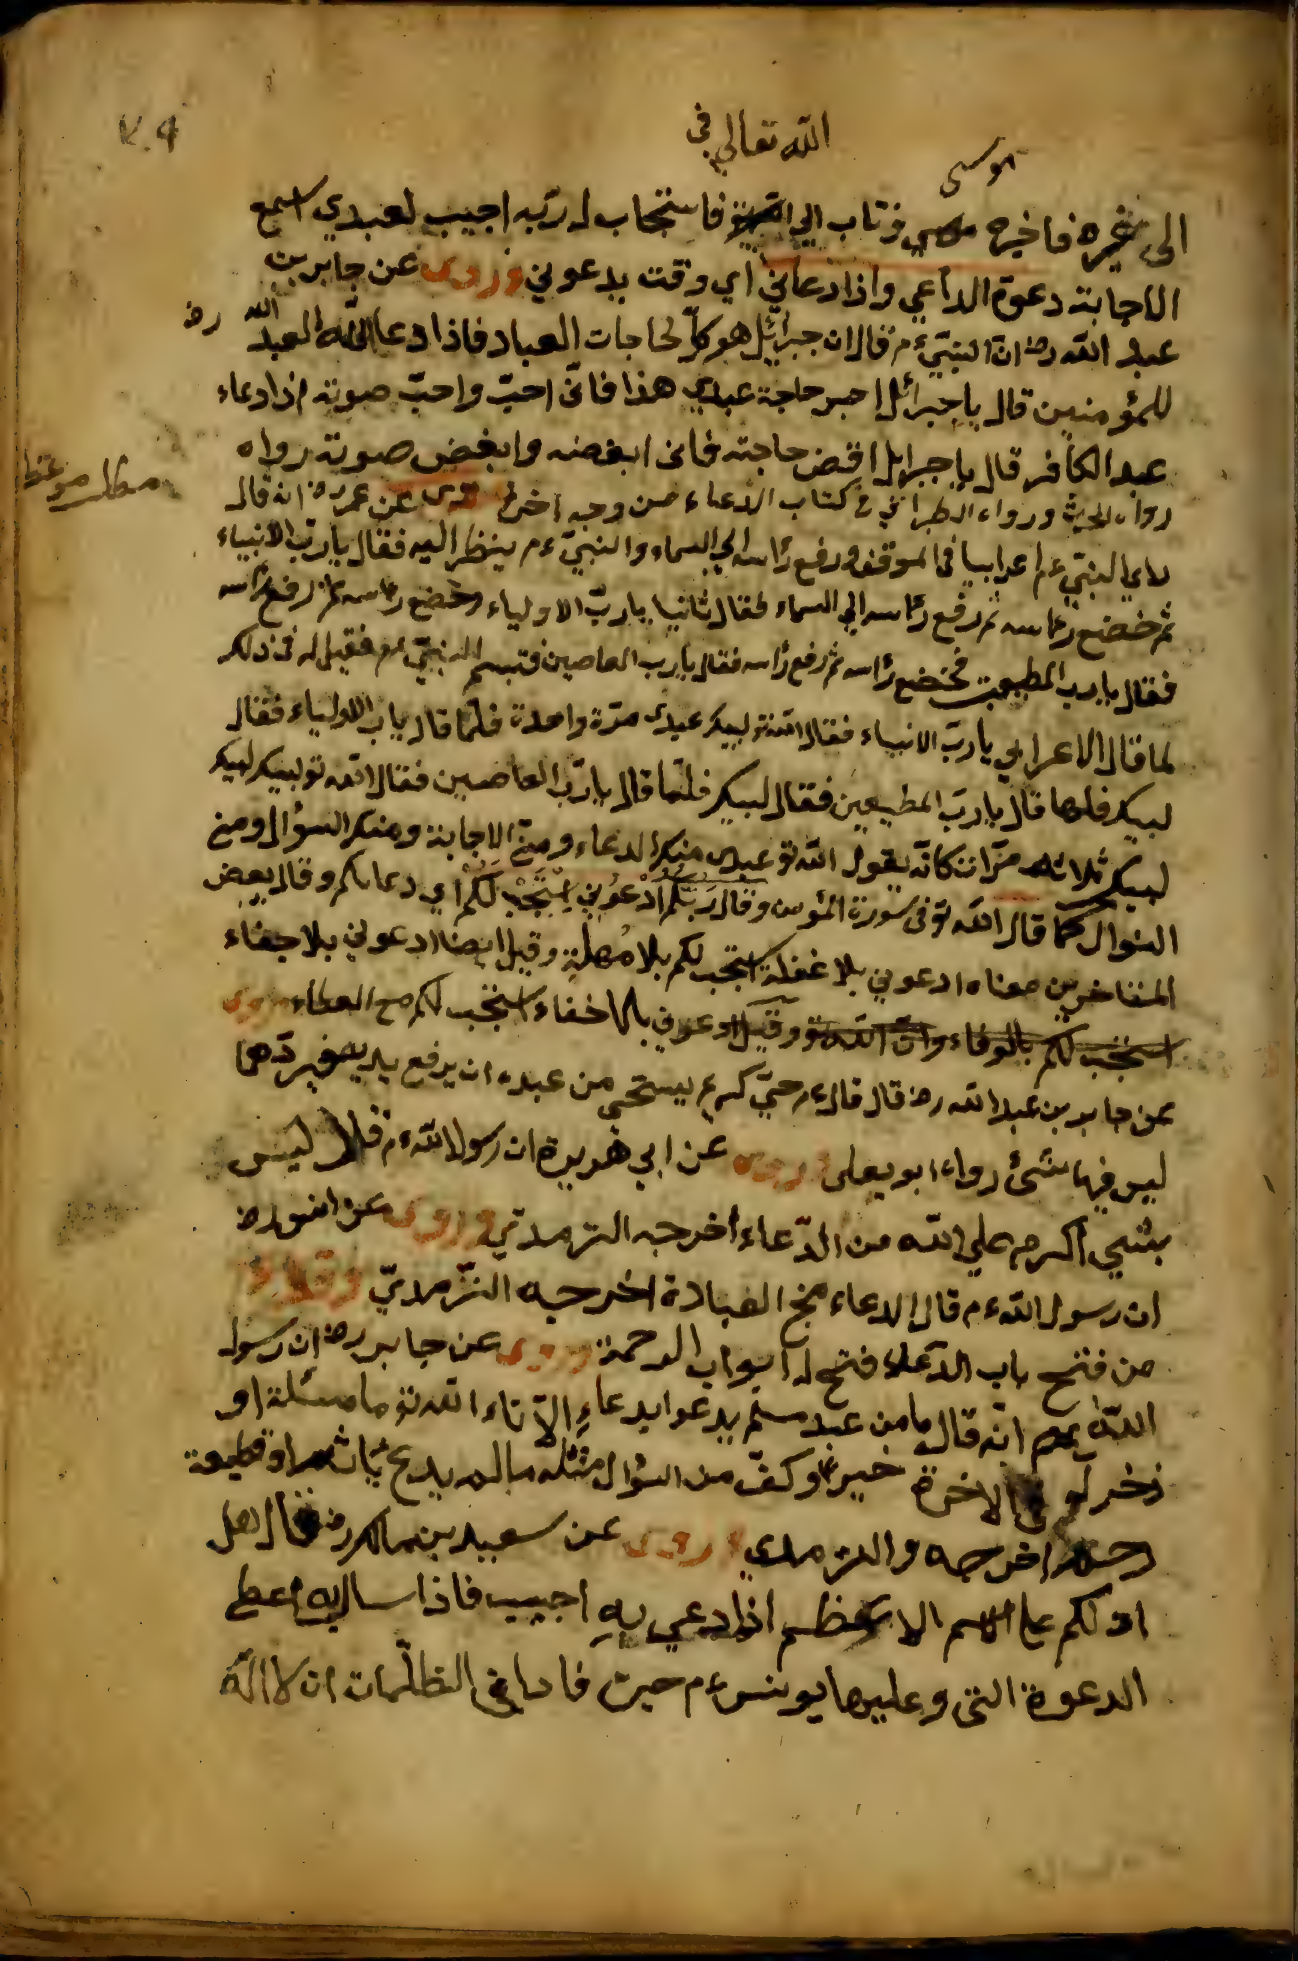 الله تعالى في
موسى
الى غيره فاخبره موسى فتاب الى فاستجاب له ربه اجيب لعبدي اسمع
الاجابة دعوة الداعي واذا دعاني اي وقت يدعوني وروى عن جابر بن
عبد الله رض ان النبي ءم قال ان جبرائيل هو كل لحاجات العباد فاذا دعا الله العبد الله رض
للمؤمنين قال يا جبرائل احبس حاجة عبدي هذا فاني احبّ واحبّ صوته اذا دعاء
عبد الكافر قال يا جبرايل اقض حاجته فانى ابغضه وابغض صوته رواه
مطلب موعظة
رواه ورواه الطبراني في كتاب الدعاء من وجه اخر روى عن عمر رض انه قال
راى النبي ءم اعرابيا في الموقف ورفع رأسه الى السماء والنبيّ ءم ينظر اليه فقال يا ربّ الانبياء
ثم خضع رءسه ثم رفع رأسه الى السماء فقال ثانيا يا ربّ الاولياء وخضع رءسه ثم رفع رأسه
فقال يا رب المطيعين فخضع رأسه ثم رفع رأسه فقال يا رب العاصين فتبسم النبيّ عم فقيل له في ذلك
لما قال الاعرابي يا ربّ الانبياء فقال الله تو لبيك عبدى مرّة واحدة فلمّا قال يا رب الاولياء فقال
لبيك فلما قال يا ربّ المطيعين فقال لبيك فلمّا قال يا ربّ العاصين فقال الله تو لبيك لبيك
لبيك ثلاثة مرّات كانّه يقول الله تو عبدى منك الدعاء ومنّى الاجابة ومنك السؤال ومنى
النوال كما قال الله تو فى سورة المؤمن وقال رَبُّكُمُ ادْعُونِي اسْتَجِبْ لَكُمْ اي دعاءكم وقال بعض
المتفاخرين معناه ادعوني بلا غفلة استجب لكم بلا مُهلة وقيل ايضا ادعوني بلا جفاء
استجب لكم بالوفاء وان الله تو وقيل ادعوني بلا خفاء استجب لكم مع العطاء روى
عن جابر بن عبد الله رض قال قال ءم حيّ كريم يستحي من عبده ان يرفع يديه فيردّهما
ليس فيهما شىء رواه ابو يعلى وروى عن ابي هريرة ان رسول الله ءم قال ليس
بشيى اكرم على الله من الدّعاء أخرجه الترمديّ وروى عن انس رض
ان رسول الله ءم قال الدعاء مخ العبادة اخرجه التّرمديّ وقال
من فتح باب الدّعاء فتح له ابواب الرحمة وروى عن جابر رض ان رسول
اللّه عم انّه قال ما من عبد مسلم يدعوا بدعاءٍ الاّ تاه الله تو ما مسئلة او
ذخر له في الاخرة خيرا وكفّ من السؤال مثله ما لم يدع باثم او قطيعة
رحم اخرجه والترمدي وروى عن سعيد بن مالك رض قال هل
ادلكم على اسم الاعظم اذا دعي بهِ اجيب فاذا سال به اعطى
الدعوة التى وعليها يونس ءم حين نادا في الظلّمات ان لا الٰه